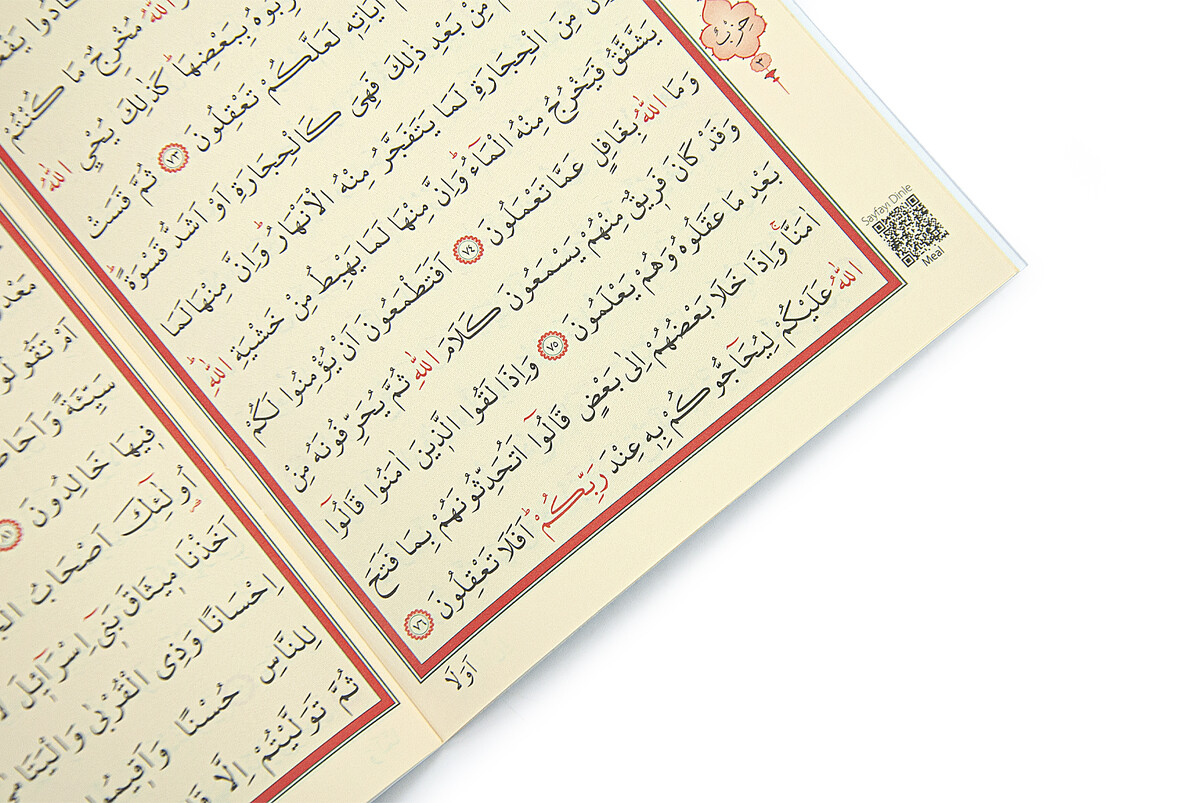 وَاللّٰهُ مُخْرِجٌ مَا كُنْتُمْ
بِبَعْضِهَاۜ كَذٰلِكَ يُحْيِي اللّٰهُ
اٰيَاتِه۪ لَعَلَّكُمْ تَعْقِلُونَ ﴿٧٣﴾ ثُمَّ قَسَتْ
مِنْ بَعْدِ ذٰلِكَ فَهِيَ كَالْحِجَارَةِ اَوْ اَشَدُّ قَسْوَةًۜ
مِنَ الْحِجَارَةِ لَمَا يَتَفَجَّرُ مِنْهُ الْاَنْهَارُۜ وَاِنَّ مِنْهَا لَمَا
يَشَّقَّقُ فَيَخْرُجُ مِنْهُ الْمَٓاءُۜ وَاِنَّ مِنْهَا لَمَا يَهْبِطُ مِنْ خَشْيَةِ اللّٰهِۜ
وَمَا اللّٰهُ بِغَافِلٍ عَمَّا تَعْمَلُونَ ﴿٧٤﴾ اَفَتَطْمَعُونَ اَنْ يُؤْمِنُوا لَكُمْ
وَقَدْ كَانَ فَر۪يقٌ مِنْهُمْ يَسْمَعُونَ كَلَامَ اللّٰهِ ثُمَّ يُحَرِّفُونَهُ مِنْ
بَعْدِ مَا عَقَلُوهُ وَهُمْ يَعْلَمُونَ ﴿٧٥﴾ وَاِذَا لَقُوا الَّذ۪ينَ اٰمَنُوا قَالُٓوا
اٰمَنَّاۚ وَاِذَا خَلَا بَعْضُهُمْ اِلٰى بَعْضٍ قَالُٓوا اَتُحَدِّثُونَهُمْ بِمَا فَتَحَ
اللّٰهُ عَلَيْكُمْ لِيُحَٓاجُّوكُمْ بِه۪ عِنْدَ رَبِّكُمْۜ اَفَلَا تَعْقِلُونَ ﴿٧٦﴾
اَوَلَا
حزب
٣
Sayfayı Dinle
Meal
اَمْ تَقُولُو
سَيِّئَةً وَاَحَا
ف۪يهَا خَالِدُونَ
اُو۬لٰٓئِكَ اَصْحَابُ
اَخَذْنَا م۪يثَاقَ بَن۪ٓي اِسْرَٓائ۪لَ
اِحْسَانًا وَذِي الْقُرْبٰى وَالْيَتَامٰى
لِلنَّاسِ حُسْنًا وَاَق۪يمُوا
ثُمَّ تَوَلَّيْتُمْ اِلَّا